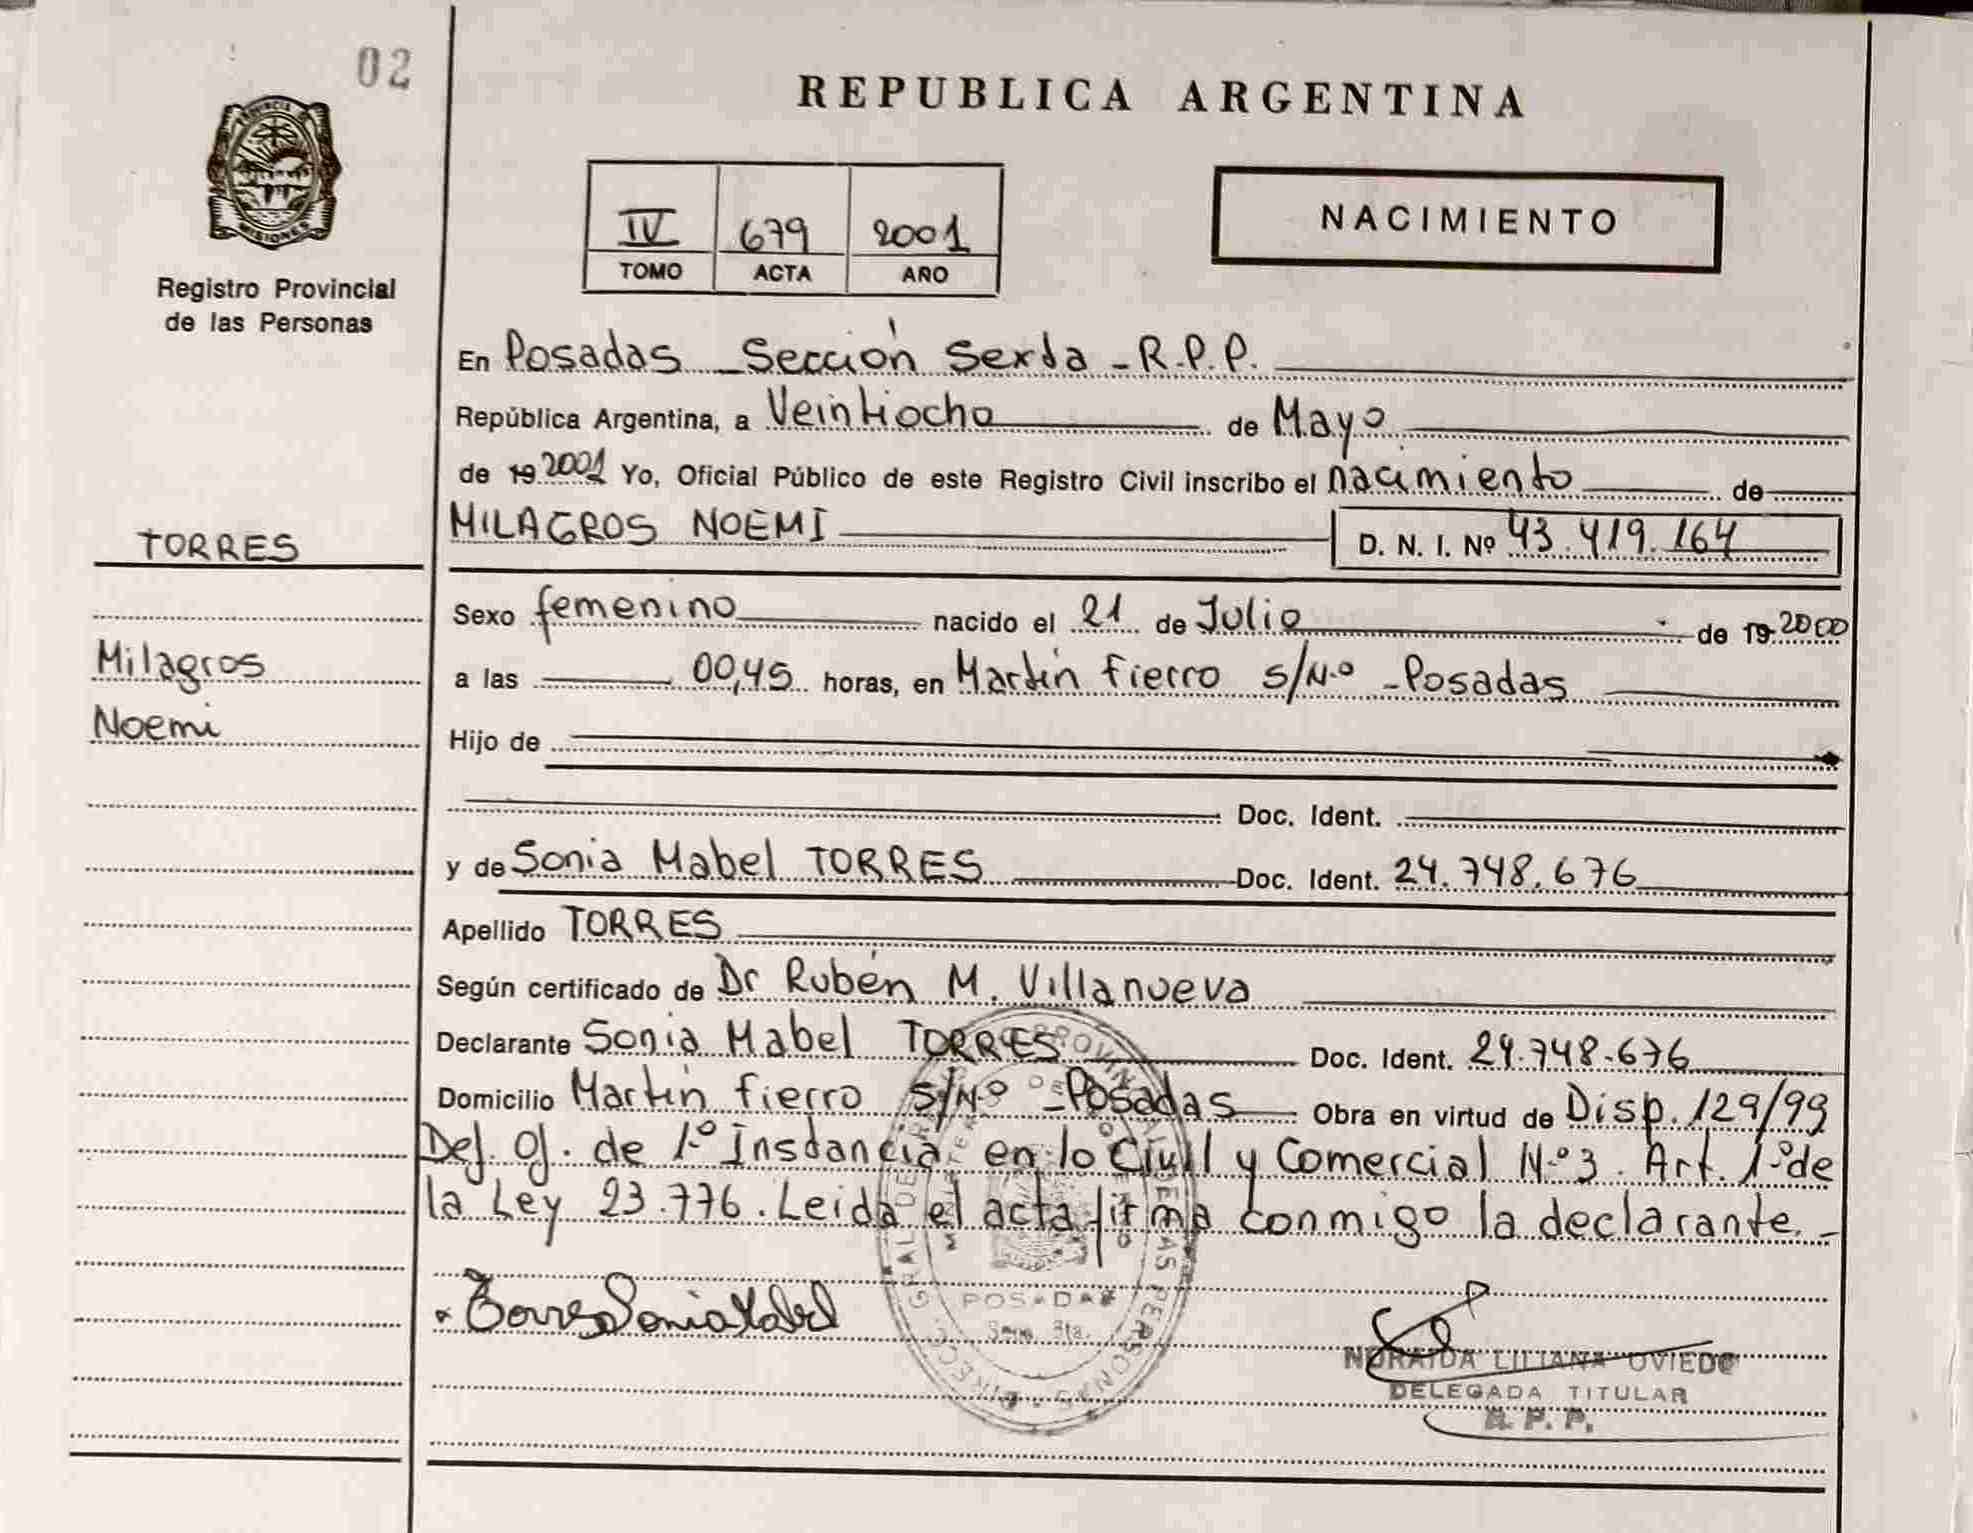 02
PROVINCIA
MISIONES
Registro Provincial
de las Personas
TORRES
Milagros
Noemi
REPUBLICA ARGENTINA
IV 679 2001
TOMO ACTA AÑO
NACIMIENTO
En Posadas _ Sección Sexta - R.P.P.
República Argentina, a Veintiocho de Mayo
de 19 2001 Yo, Oficial Público de este Registro Civil inscribo el nacimiento de
MILAGROS NOEMI D. N. I. Nº 43.419.164
Sexo femenino nacido el 21 de Julio de 19 2000
a las 00,45 horas, en Martín Fierro S/N.º - Posadas
Hijo de
Doc. Ident.
y de Sonia Mabel TORRES Doc. Ident. 24.748.676
Apellido TORRES
Según certificado de Dr Rubén M. Villanueva
Declarante Sonia Mabel TORRES Doc. Ident. 24.748.676
Domicilio Martín Fierro S/N.º - Posadas Obra en virtud de Disp. 129/99
Def. Of. de 1.º Instancia en lo Civil y Comercial N.º 3. Art. 1.º de
la Ley 23.776. Leida el acta firma conmigo la declarante. -
Torres Sonia Mabel
POSADAS
Secc. 6ta.
NORAIDA LILIANA OVIEDO
DELEGADA TITULAR
R. P. P.